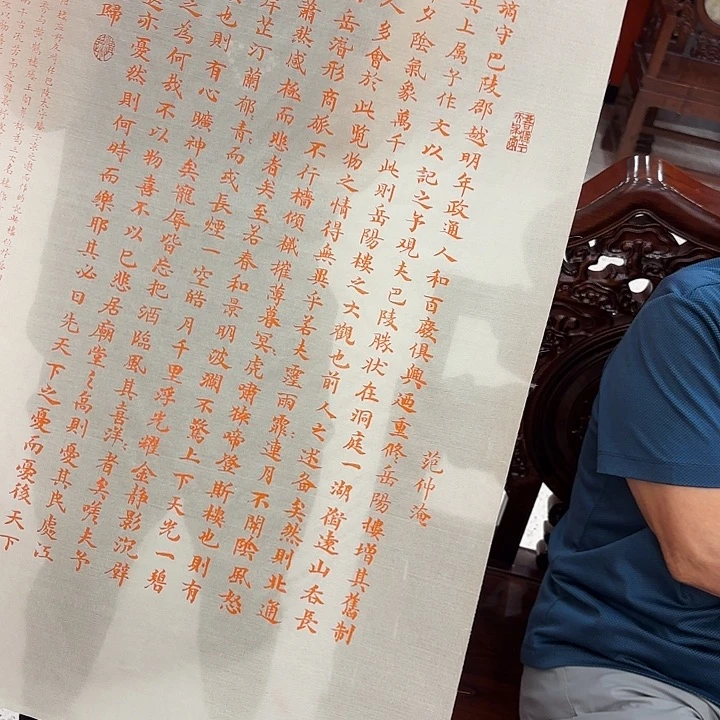 范仲淹
謫守巴陵郡越明年政通人和百廢俱興迺重修岳陽樓增其舊制
其上属予作文以記之予观夫巴陵勝状在洞庭一湖銜遠山吞長
夕陰氣象萬千此則岳陽樓之大觀也前人之述备矣然則北通
人多會於此览物之情得無異乎若夫霪雨霏〻連月不開陰風怒
岳潛形商旅不行檣傾檝摧薄暮冥〻虎嘯猿啼登斯樓也則有
蕭然感極而悲者矣至若春和景明波瀾不驚上下天光一碧
芷汀蘭郁〻青〻而或長煙一空皓月千里浮光耀金静影沉璧
也則有心曠神矣寵辱皆忘把酒臨風其喜洋〻者矣嗟夫予
之為何哉不以物喜不以己悲居廟堂之高則憂其民處江
亦憂然則何時而樂耶其必曰先天下之憂而憂後天下
歸